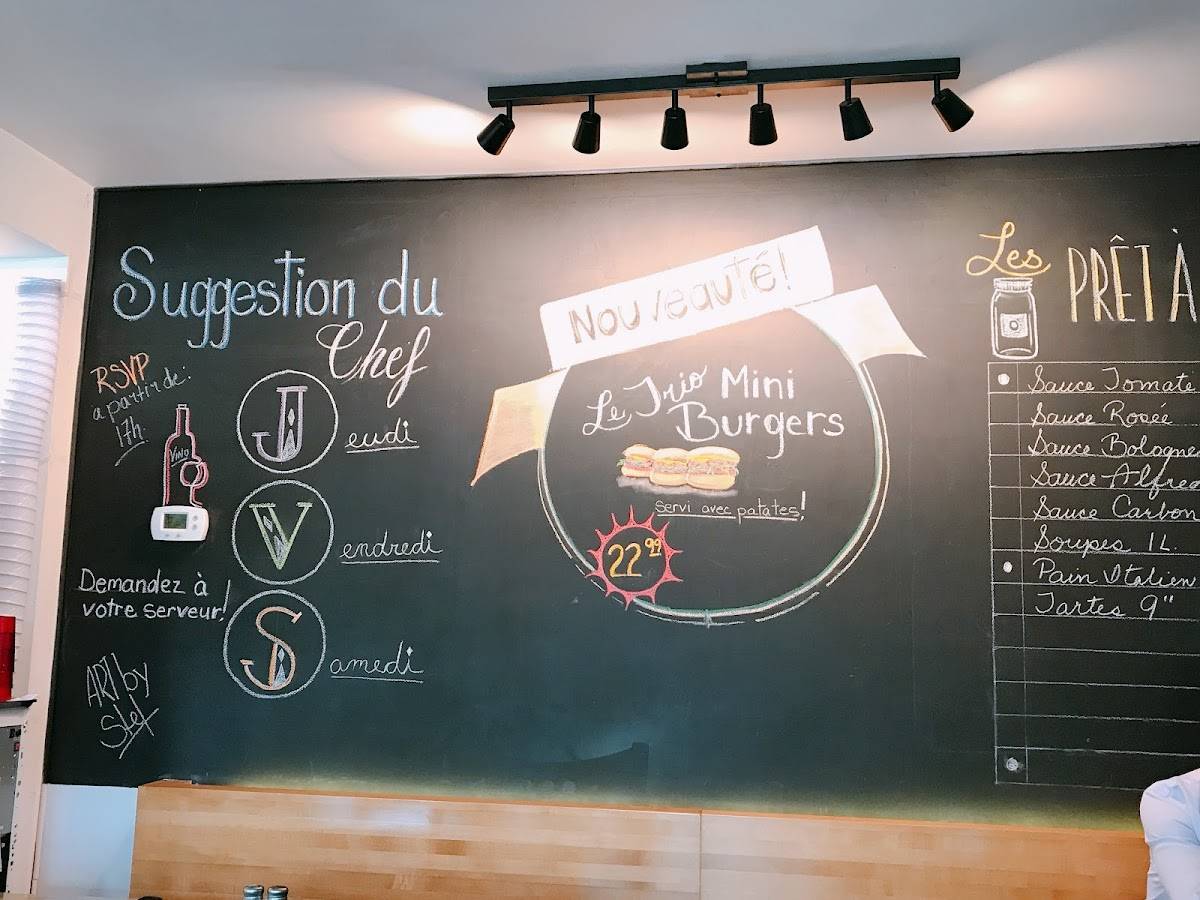 Suggestion du
Chef
RSVP
a partir de:
17h.
VINO
Jeudi
Vendredi
Samedi
Demandez à
votre serveur!
ART by
Stef
Nouveauté!
Le Trio Mini
Burgers
servi avec patates!
22 99
Les PRÊT À
Sauce Tomate
Sauce Rosée
Sauce Bologne
Sauce Alfred
Sauce Carbon
Soupes 1L.
Pain Italien
Tartes 9"